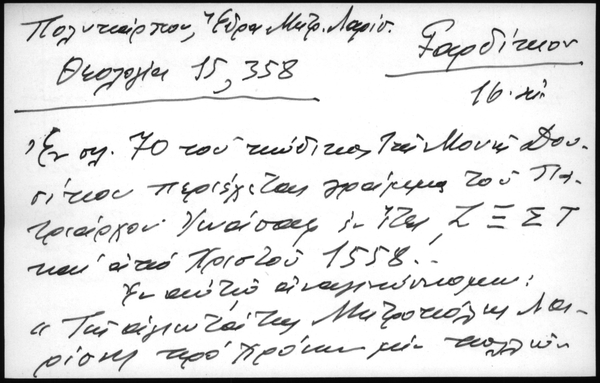 Πολυκάρπου, Ἕδρα Μητρ. Λαρίσ.
Γαρδίκιον
Θεολογία 15, 358
16.
Ἐν σελ. 70 τοῦ κώδικος τῆς Μονῆς Δου-
σίκου περιέχεται γράμμα τοῦ Πα-
τριάρχου Ἰωάσαφ ἐν ἔτει ΖΞΣΤ
καὶ ἀπὸ Χριστοῦ 1558.
Ἐν αὐτῷ ἀναγινώσκομεν:
« Τῆς ἁγιωτάτης Μητροπόλεως Λα-
ρίσης πρὸ χρόνων μὲν πολλῶν